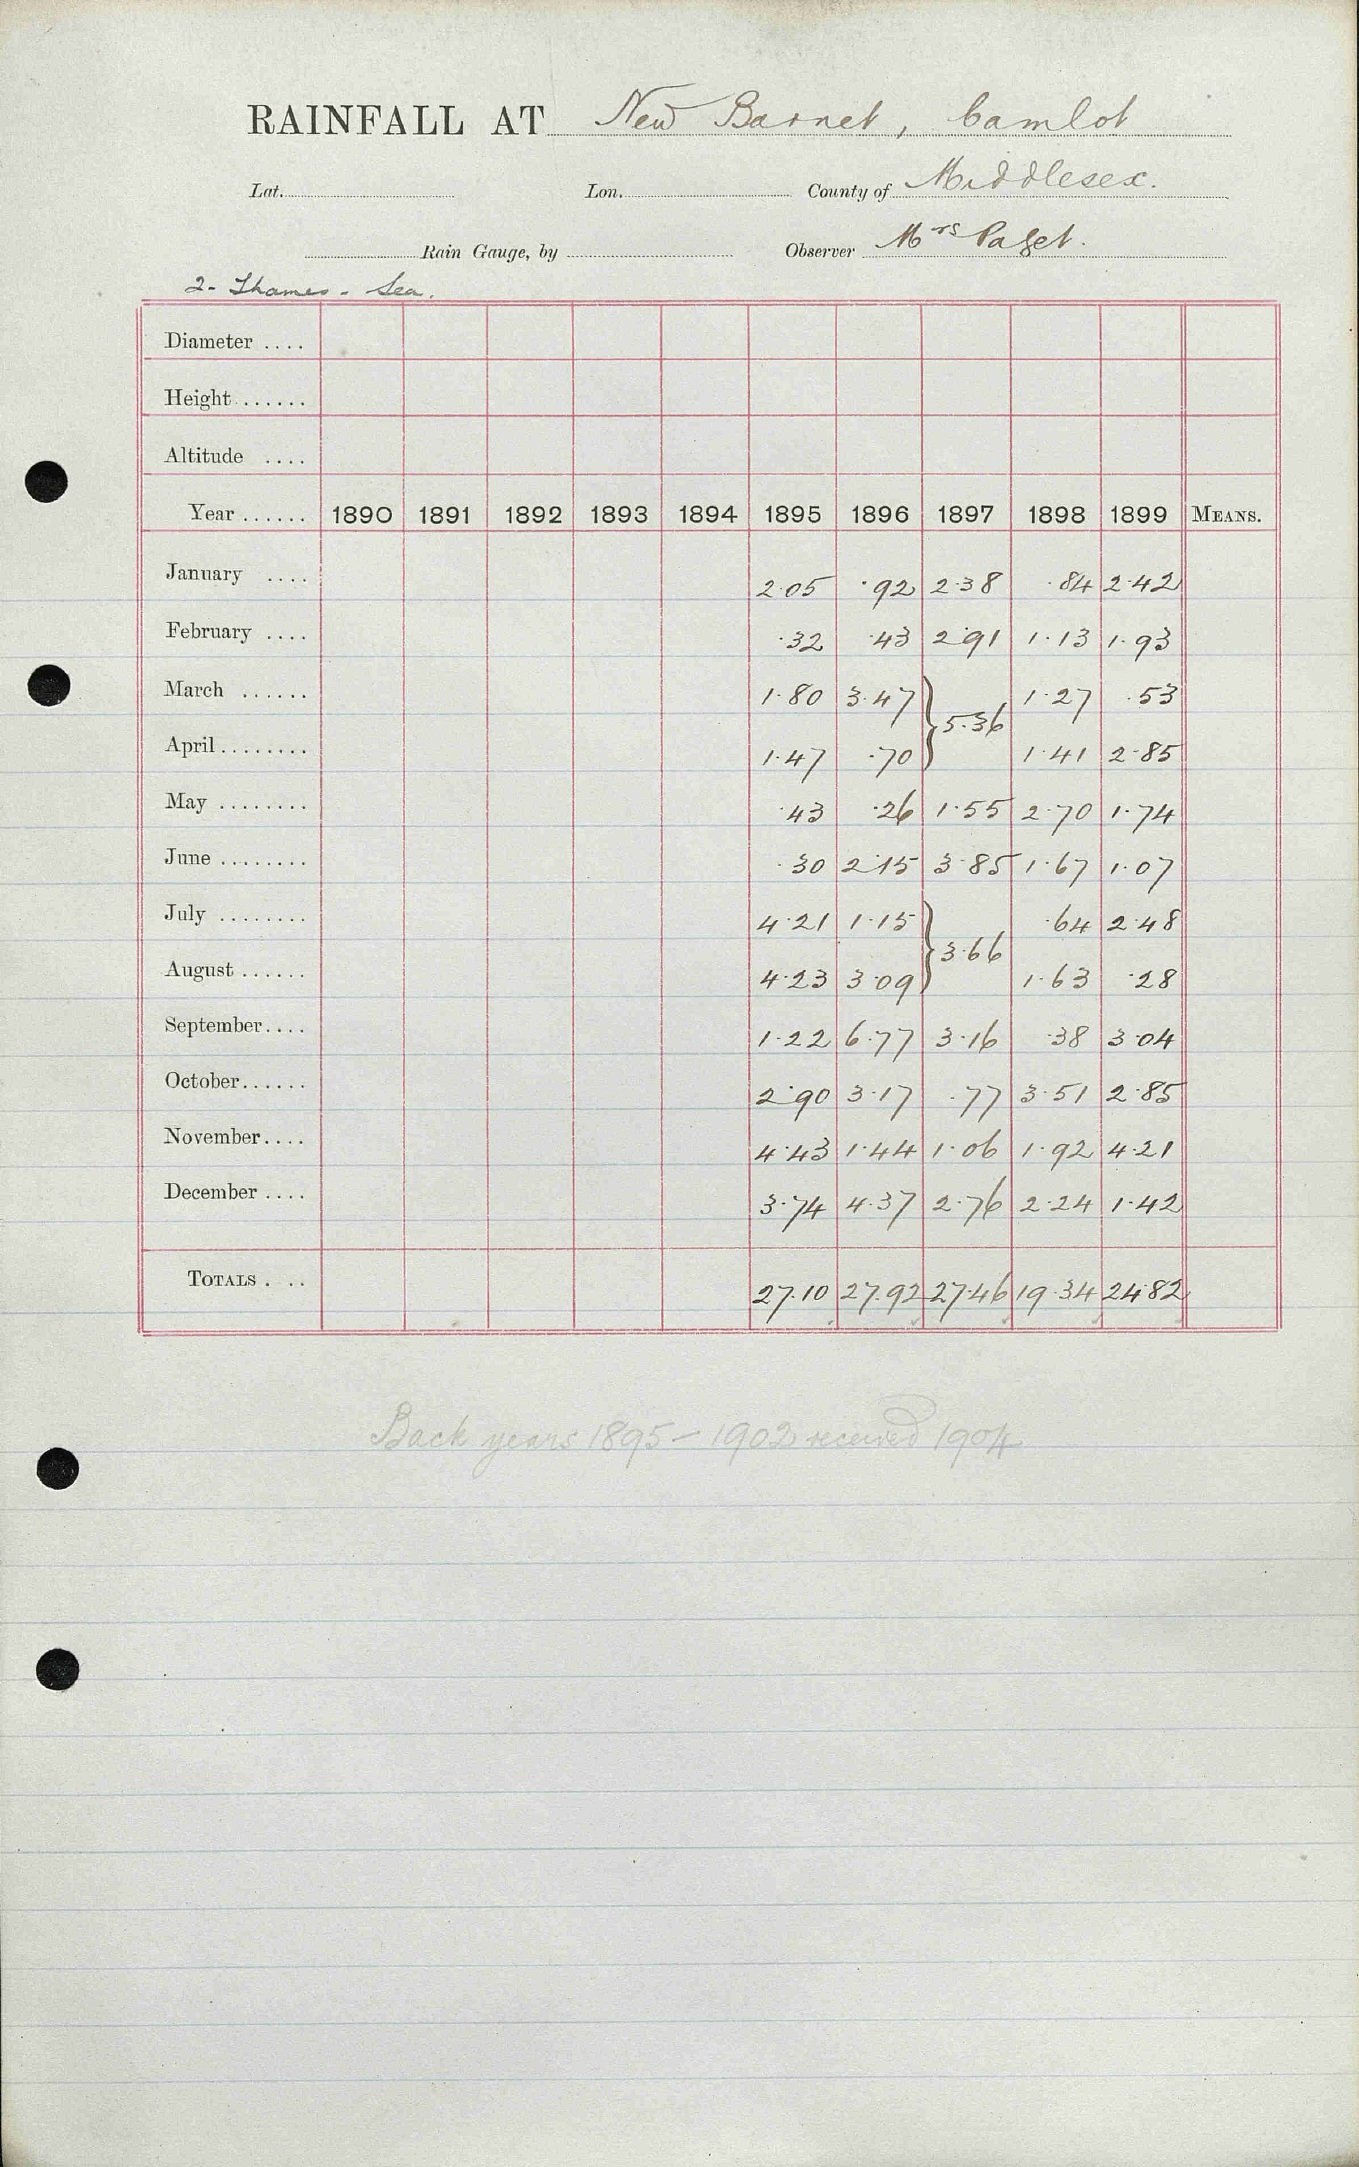 RAINFALL AT New Barnet, Camlot
Lat. Lon. County of Middlesex.
Rain Gauge, by Observer Mrs Paget.
2- Thames - Sea.
Diameter ....
Height ......
Altitude ....
Year ...... 1890 1891 1892 1893 1894 1895 1896 1897 1898 1899 MEANS.
January .... 2.05 .92 2.38 .84 2.42
February .... .32 .43 2.91 1.13 1.93
March ...... 1.80 3.47 } 1.27 .53
5.36
April ........ 1.47 .70 1.41 2.85
May ........ .43 .26 1.55 2.70 1.74
June ........ .30 2.15 3.85 1.67 1.07
July ........ 4.21 1.15 } .64 2.48
3.66
August ...... 4.23 3.09 1.63 .28
September.... 1.22 6.77 3.16 .38 3.04
October...... 2.90 3.17 .77 3.51 2.85
November.... 4.43 1.44 1.06 1.92 4.21
December .... 3.74 4.37 2.76 2.24 1.42
TOTALS . .. 27.10 27.92 27.46 19.34 24.82
Back years 1895 - 1902 received 1904